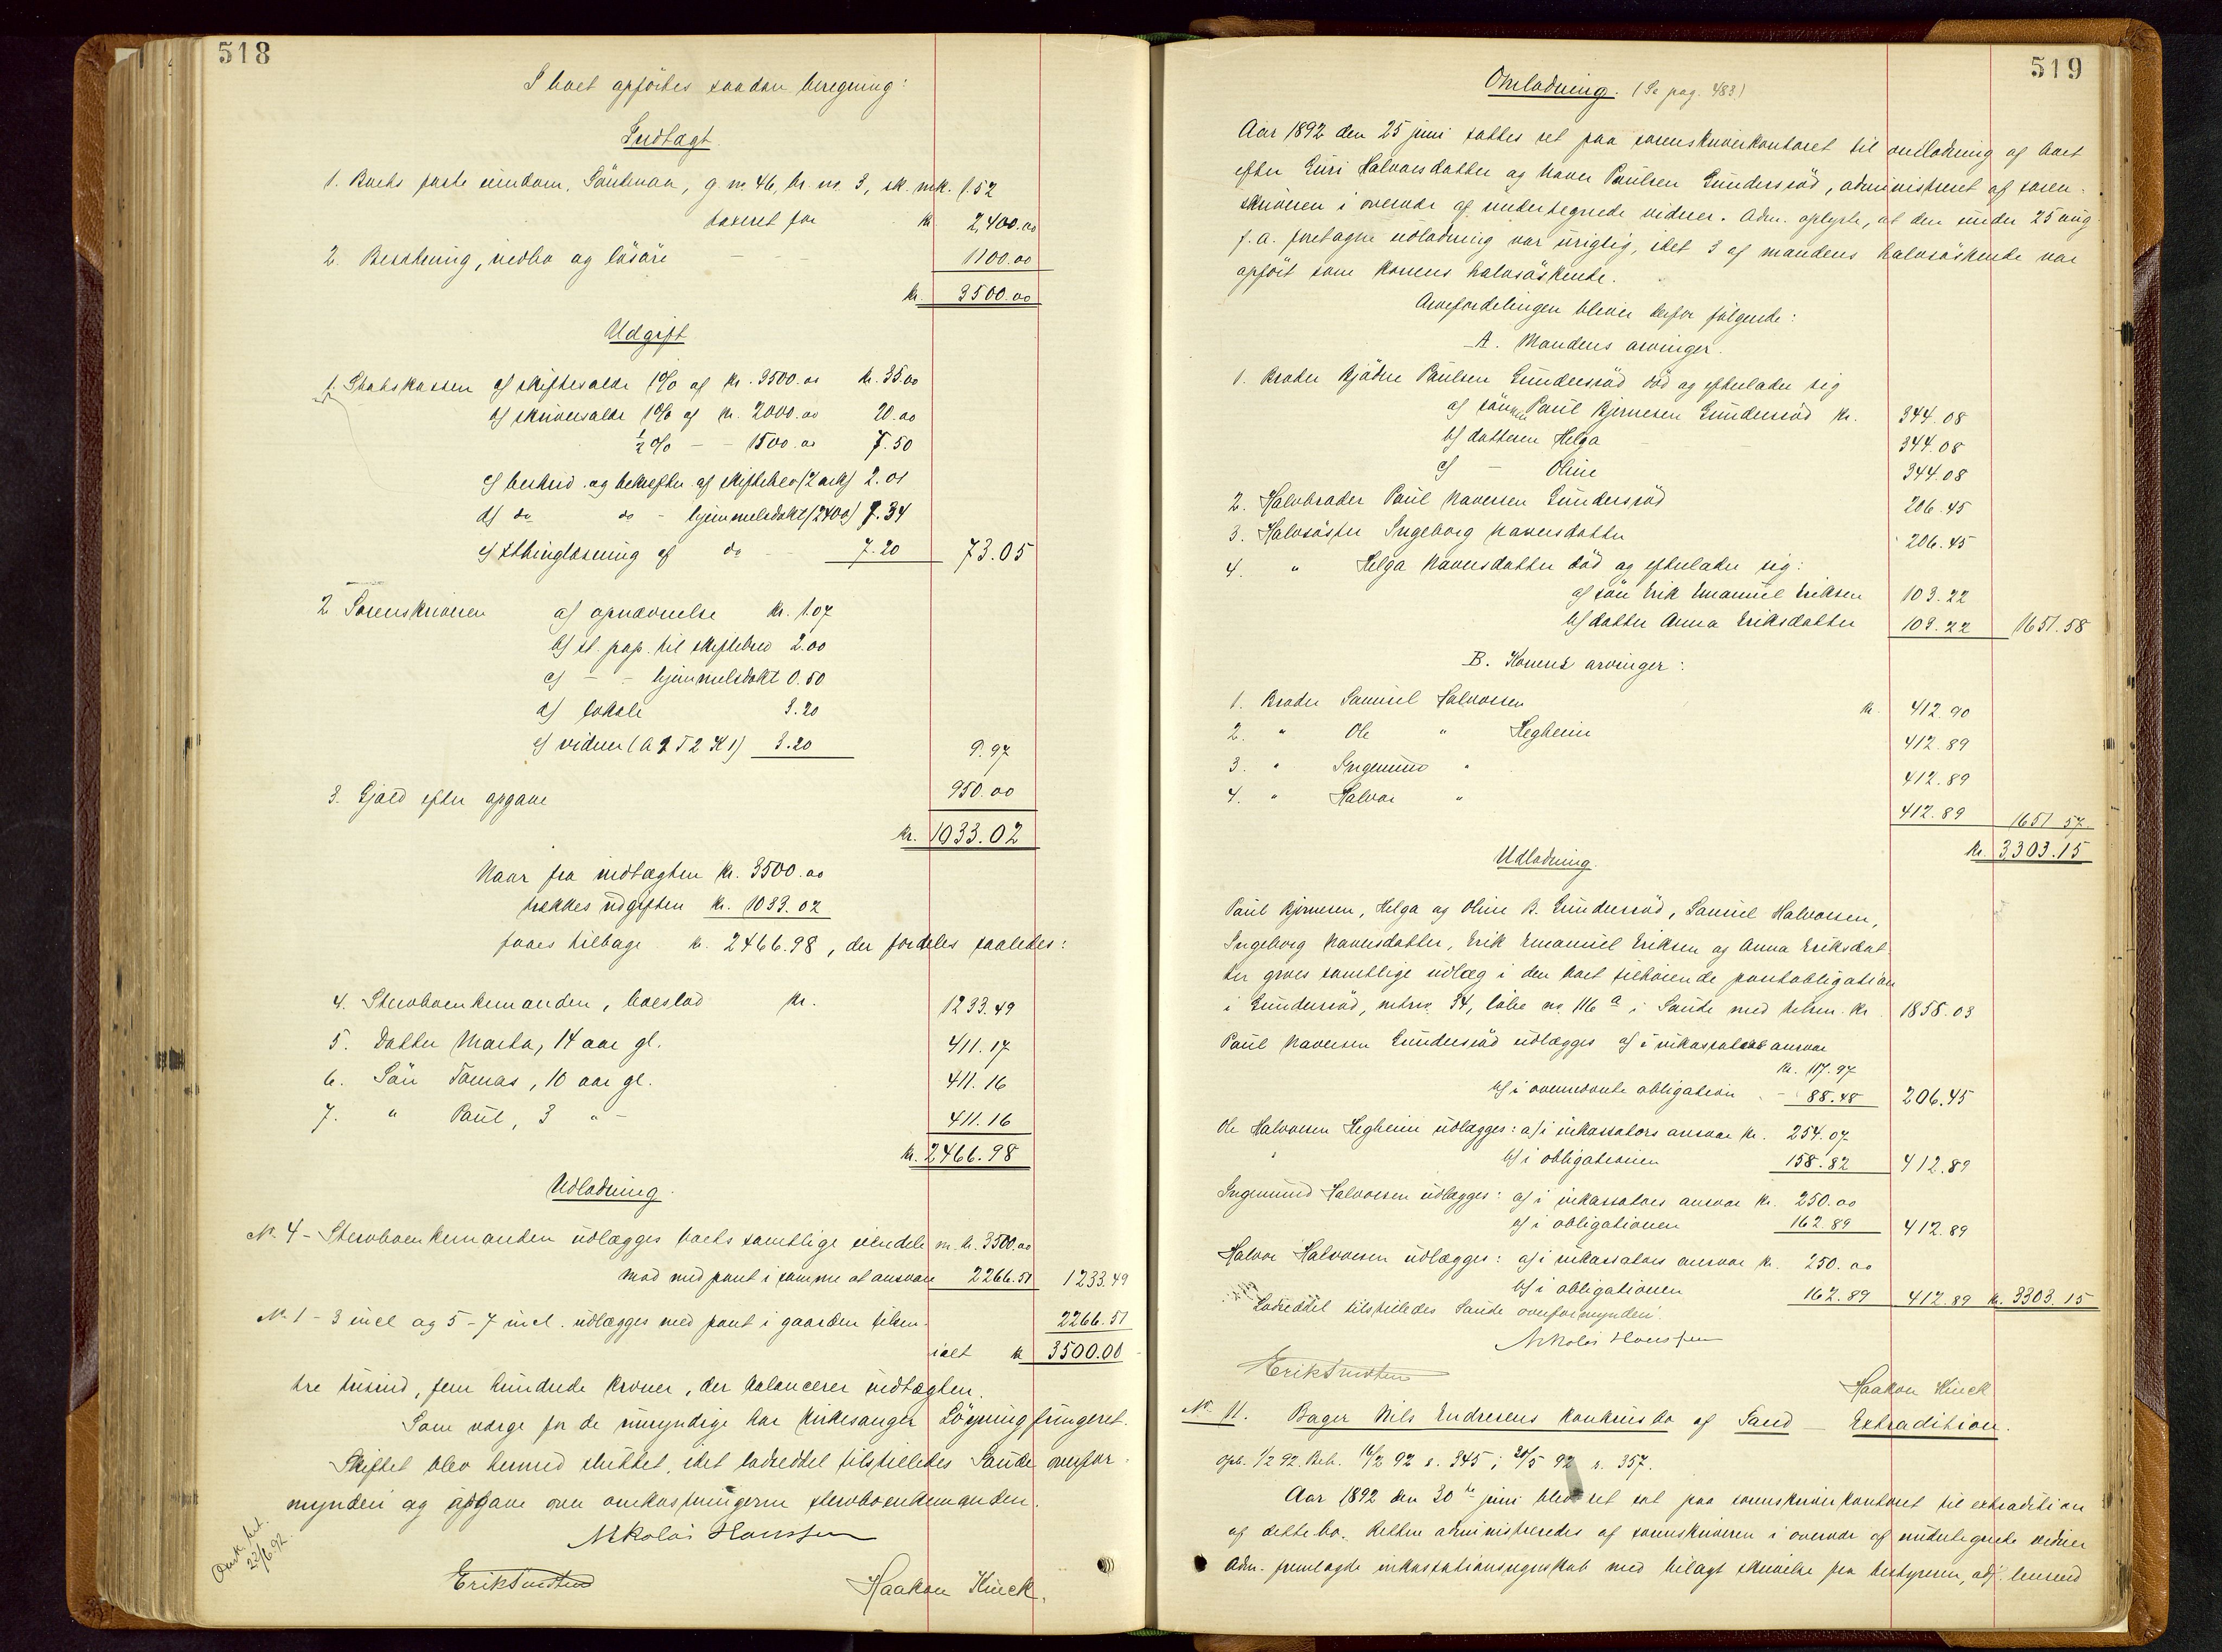 518
I boet opførtes saadan beregning:
Indtægt.
1. Boets faste eiendom, Söntvaa, g. no. 46, br. no. 3, sk. mk. 1.52
taxeret for kr. 2,400.00
2. Besætning, indbo og lösöre - - - 1100.00
kr. 3500.00
Udgift
1. Statskassen a) skiftesalær 1% af kr. 3500.00 kr. 35.00
b) skriversalær 1% af kr. 2000.00 20.00
½% - - 1500.00 7.50
c) beskriv. og bekræftn. af skiftebrev (2 ark) 2.01
d) do do - hjemmelsdokt (2400) 7.34
e) thinglæsning af do - 7.20 73.05
2. Sorenskriveren a) opnævnelse kr. 1.07
b) st. pap. til skiftebrev 2.00
c) - - hjemmelsdokt 0.50
d) lokale 3.20
e) vidner (A 2 T 2 K 1) 3.20 9.97
3. Gjæld efter opgave 950.00
kr. 1033.02
Naar fra indtægten kr. 3500.00
trækkes udgiften kr. 1033.02
faaes tilbage kr. 2466.98, der fordeles saaledes:
4. Stervboenkemanden, boeslod kr. 1233.49
5. Datter Marta, 14 aar gl. 411.17
6. Sön Tomas, 10 aar gl. 411.16
7. " Paul, 3 " - 411.16
kr. 2466.98
Udlodning.
No. 4 - Stervboenkemanden udlægges boets samtlige eiendele m. kr. 3500.00
mod med pant i samme at ansvare 2266.51 1233.49
No. 1 - 3 incl og 5 - 7 incl. udlægges med pant i gaarden tilsn. 2266.51
ialt kr. 3500.00
tre tusind, fem hundrede kroner, der balancerer indtægten.
Som værge for de umyndige har kirkesanger Lögning fungeret.
Skiftet blev hermed sluttet, idet lodseddel tilstilledes Saude overfor-
mynderi og opgave over omkostningerne stervboenkemanden.
Nikolai Honssen
22/6 92.
Haakon Kinck.
519
Omlodning. (Se pag. 483)
Aar 1892 den 25 juni sattes ret paa sorenskriverkontoret til omlodning af boet
efter Guri Halvorsdatter og Naver Paulsen Gundersröd, administreret af soren-
skriveren i overvær af undertegnede vidner. Adm. oplyste, at den under 25 aug.
f. a. foretagne udlodning var urigtig, idet 3 af mandens halvsöskende var
opfört som konens halvsöskende.
Arvefordelingen bliver derfor fölgende:
A. Mandens arvinger.
1. Broder Bjödne Paulsen Gundersröd död og efterlader sig
a) sönnen Paul Bjernesen Gundersröd kr. 344.08
b) datteren Helga 344.08
c) - Oline 344.08
2. Halvbroder Paul Naversen Gundersröd 206.45
3. Halvsöster Ingeborg Naversdatter 206.45
4. " Helga Naversdatter död og efterlader sig:
a) sön Erik Emanuel Eriksen 103.22
b) datter Anna Eriksdatter 103.22 1651.58
B. Konens arvinger:
1. Broder Samuel Halvorsen kr. 412.90
2. " Ole " Hegheim 412.89
3. " Ingemund " 412.89
4. " Halvor " 412.89 1651.57
kr. 3303.15
Udlodning.
Paul Bjernesen, Helga og Oline B. Gundersröd, Samuel Halvorsen,
Ingeborg Naversdatter, Erik Emanuel Eriksen og Anna Eriksdat-
ter gives samtlige udlæg i den boet tilhörende pantobligation
i Gundersröd, mtrno. 34, löbe no. 116 a i Saude med tilsn. kr. 1858.03
Paul Naversen Gundersröd udlægges a) i inkassators ansvar
kr. 117.97
b) i ovennævnte obligation - 88.48 206.45
Ole Halvorsen Hegheim udlægges: a) i inkassators ansvar kr. 254.07
b) i obligationen 158.82 412.89
Ingemund Halvorsen udlægges: a) i inkassators ansvar kr. 250.00
b) i obligationen 162.89 412.89
Halvor Halvorsen udlægges: a) i inkassators ansvar kr. 250.00
b) i obligationen 162.89 412.89 kr. 3303.15
Lodseddel tilstilledes Saude overformynderi.
Nikolai Honssen
Haakon Kinck
No. 11. Bager Nils Endresens konkursbo af Sand - Extradition.
Opb. 1/2 92. Beh. 16/2 92 s. 345; 20/5 92 s. 357.
Aar 1892 den 30te juni blev ret sat paa sorenskriverkontoret til extradition
af dette bo. Retten administreredes af sorenskriveren i overvær af undertegnede vidner
Adm. fremlagde inkassationsregnskab med bilagt skrivelse fra bestyreren, adj. lensmd